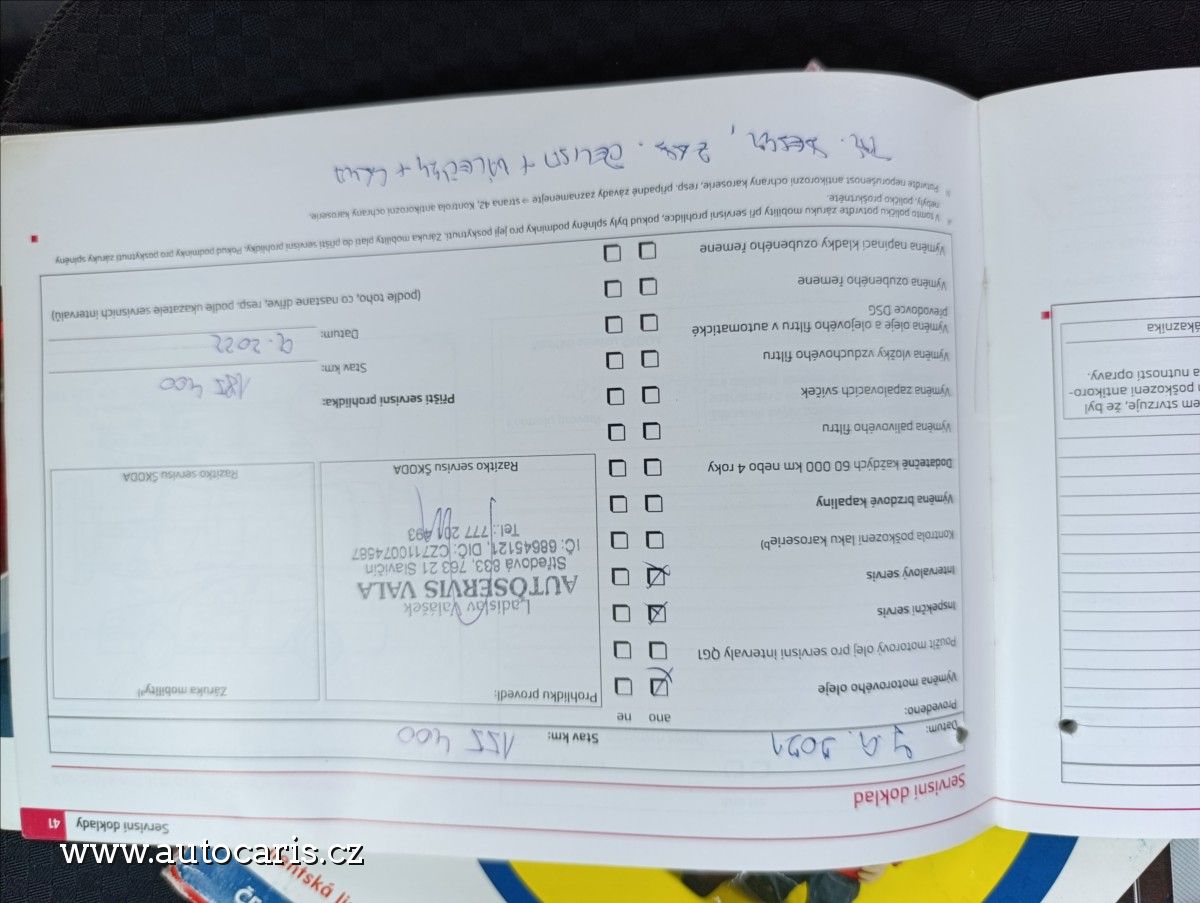 Servisní doklady 41
Servisní doklad
Datum: 7.9.2021 Stav km: 155 400
Provedeno: ano ne
Výměna motorového oleje
Použit motorový olej pro servisní intervaly QG1
Inspekční servis
Intervalový servis
Kontrola poškození laku karoserieb)
Výměna brzdové kapaliny
Dodatečně každých 60 000 km nebo 4 roky
Výměna palivového filtru
Výměna zapalovacích svíček
Výměna vložky vzduchového filtru
Výměna oleje a olejového filtru v automatické
převodovce DSG
Výměna ozubeného řemene
Výměna napínací kladky ozubeného řemene
Prohlídku provedl:
Ladislav Valášek
AUTOSERVIS VALA
Středová 833, 763 21 Slavičín
IČ: 68645121, DIČ: CZ7110074587
Tel.: 777 201 493
Razítko servisu ŠKODA
Záruka mobilitya)
Razítko servisu ŠKODA
Příští servisní prohlídka:
Stav km: 185 400
Datum: 9.2022
(podle toho, co nastane dříve, resp. podle ukazatele servisních intervalů)
a) V tomto políčku potvrďte záruku mobility při servisní prohlídce, pokud byly splněny podmínky pro její poskytnutí. Záruka mobility platí do příští servisní prohlídky. Pokud podmínky pro poskytnutí záruky splněny
nebyly, políčko proškrtněte.
b) Potvrďte neporušenost antikorozní ochrany karoserie, resp. případné závady zaznamenejte ⇒ strana 42, Kontrola antikorozní ochrany karoserie.
ČELISTI + VÁLEČKY + LANA
em stvrzuje, že byl
poškození antikoro-
a nutností opravy.
ákazníka
www.autocaris.cz
entská li